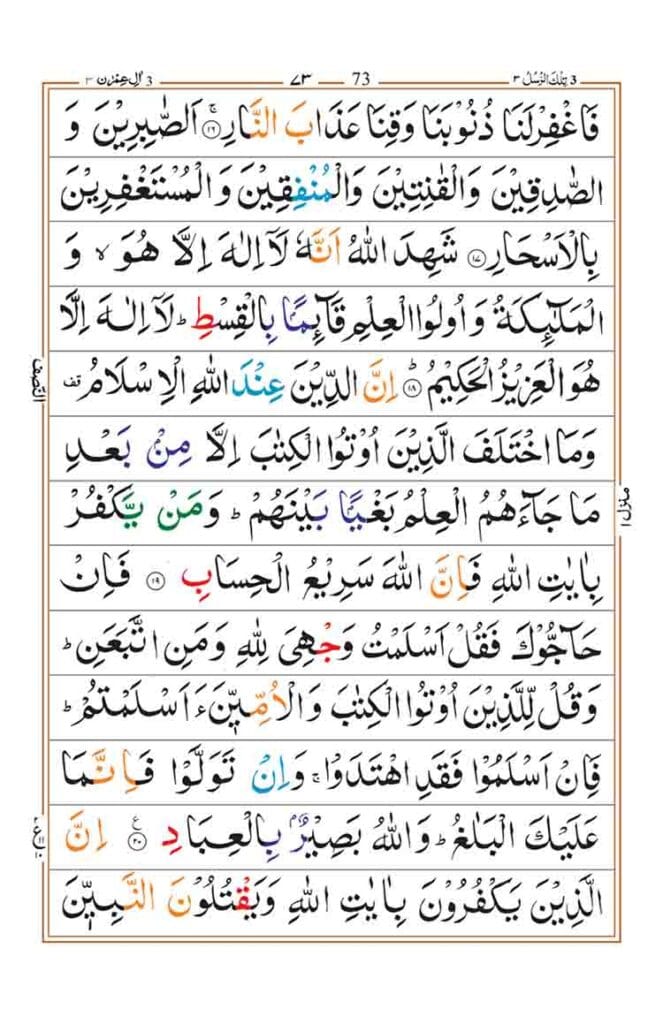 تِلْكَ الرُّسُلُ ٣ 3 73 ٧٣ اٰلِ عِمْرٰن ٣ 3
فَاغْفِرْلَنَا ذُنُوْبَنَا وَقِنَا عَذَابَ النَّارِۚ ﴿١٦﴾ اَلصّٰبِرِيْنَ وَ
الصّٰدِقِيْنَ وَالْقٰنِتِيْنَ وَالْمُنْفِقِيْنَ وَالْمُسْتَغْفِرِيْنَ
بِالْاَسْحَارِ ﴿١٧﴾ شَهِدَ اللّٰهُ اَنَّهٗ لَاۤ اِلٰهَ اِلَّا هُوَ ۙ وَ
الْمَلٰٓئِكَةُ وَاُولُوا الْعِلْمِ قَآئِمًۢا بِالْقِسْطِ ؕ لَاۤ اِلٰهَ اِلَّا
هُوَ الْعَزِيْزُ الْحَكِيْمُ ؕ ﴿١٨﴾ اِنَّ الدِّيْنَ عِنْدَ اللّٰهِ الْاِسْلَامُ قف
النصف
وَمَا اخْتَلَفَ الَّذِيْنَ اُوْتُوا الْكِتٰبَ اِلَّا مِنْۢ بَعْدِ
مَا جَآءَهُمُ الْعِلْمُ بَغْيًۢا بَيْنَهُمْ ؕ وَمَنْ يَّكْفُرْ
منزل ١
بِاٰيٰتِ اللّٰهِ فَاِنَّ اللّٰهَ سَرِيْعُ الْحِسَابِ ﴿١٩﴾ فَاِنْ
حَآجُّوْكَ فَقُلْ اَسْلَمْتُ وَجْهِىَ لِلّٰهِ وَمَنِ اتَّبَعَنِ ؕ
وَقُلْ لِّلَّذِيْنَ اُوْتُوا الْكِتٰبَ وَالْاُمِّيّٖنَ ءَاَسْلَمْتُمْ ؕ
فَاِنْ اَسْلَمُوْا فَقَدِ اهْتَدَوْا ۚ وَاِنْ تَوَلَّوْا فَاِنَّمَا
عَلَيْكَ الْبَلٰغُ ؕ وَاللّٰهُ بَصِيْرٌۢ بِالْعِبَادِ ﴿٢٠﴾ ع اِنَّ
الَّذِيْنَ يَكْفُرُوْنَ بِاٰيٰتِ اللّٰهِ وَيَقْتُلُوْنَ النَّبِيّٖنَ